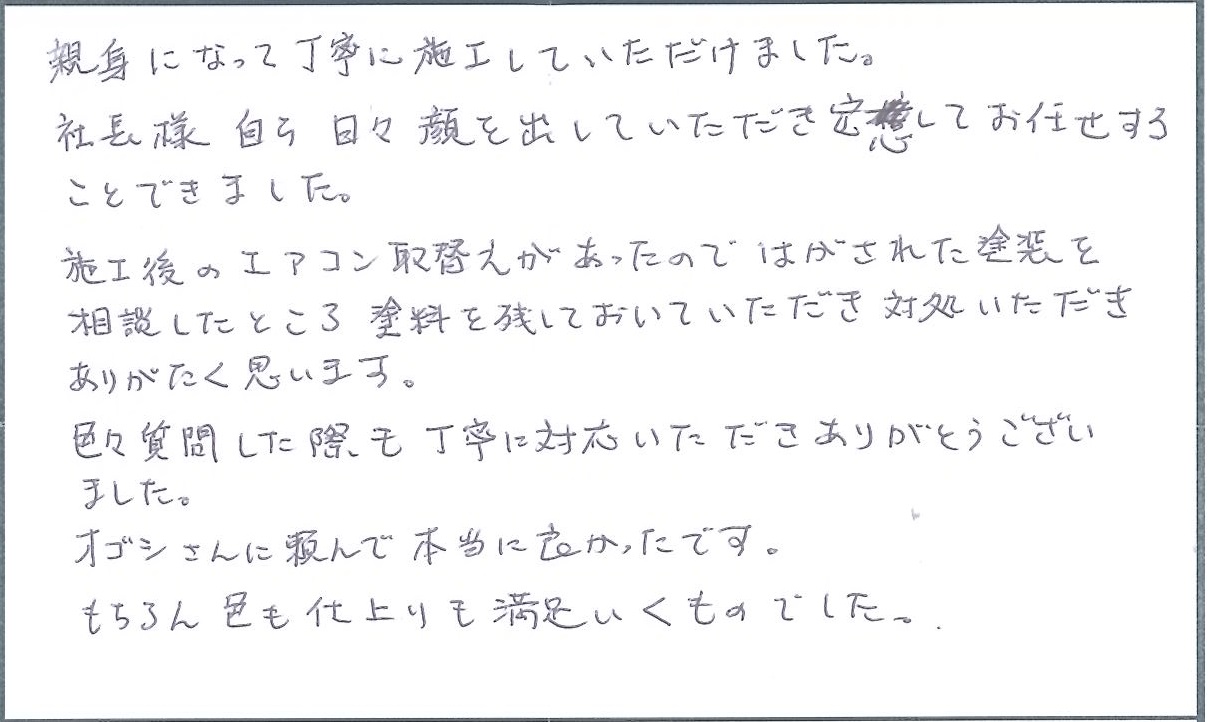 親身になって丁寧に施工していただけました。
社長様 自ら 日々 顔を出していただき安して お任せする
ことできました。
施工後の エアコン取替えがあったので はがされた塗装を
相談したところ 塗料を残しておいていただき 対処いただき
ありがたく思います。
色々質問した際も 丁寧に対応いただきありがとうござい
ました。
オゴシさんに頼んで本当に良かったです。
もちろん 色も仕上りも満足いくものでした。